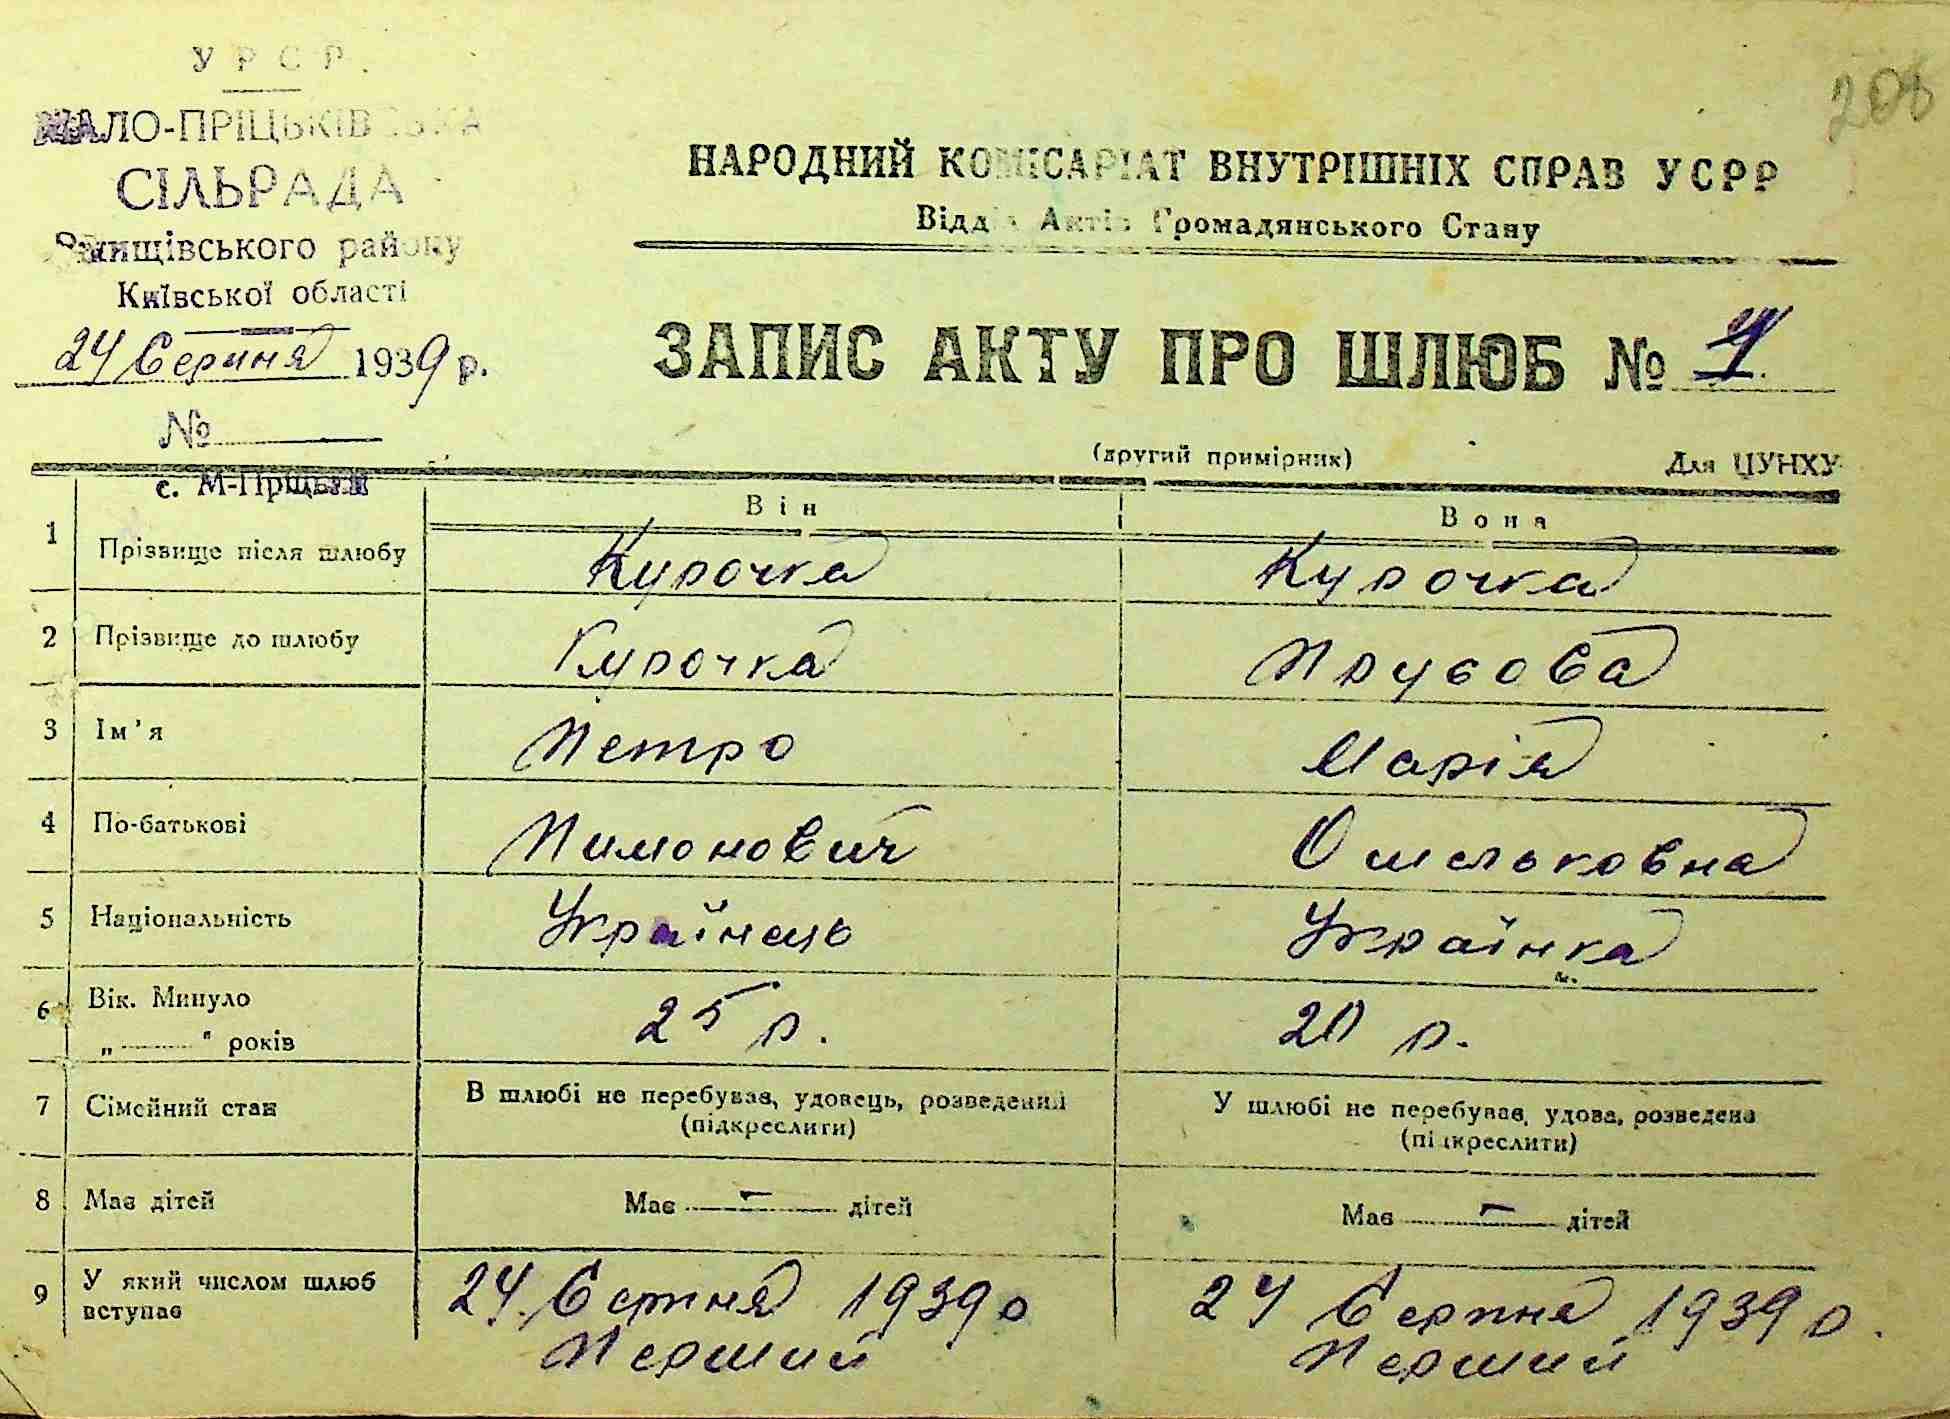 УРСР.
МАЛО-ПРІЦЬКІВСЬКА
СІЛЬРАДА
Ржищівського району
Київської області
24 Серпня 1939 р.
№
с. М-Пріцьки
208
НАРОДНИЙ КОМІСАРІАТ ВНУТРІШНІХ СПРАВ УСРР
Відділ Актів Громадянського Стану
ЗАПИС АКТУ ПРО ШЛЮБ №
(другий примірник) Для ЦУНХУ
Він Вона
1 Прізвище після шлюбу Курочка Курочка
2 Прізвище до шлюбу Курочка Прусова
3 Ім'я Петро Марія
4 По-батькові Пимонович Омельковна
5 Національність Українець Українка
6 Вік. Минуло
„ " років 25 р. 20 р.
7 Сімейний стан В шлюбі не перебував, удовець, розведений У шлюбі не перебував, удова, розведена
(підкреслити) (підкреслити)
8 Має дітей Має — дітей Має — дітей
9 У який числом шлюб
вступає 24 Серпня 1939 р 24 Серпня 1939 р.
Перший Перший